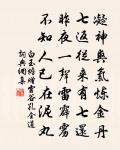 凝神與氣煉金丹
七返從來有七還
昨夜一聲雷霹靂
不知人已在泥丸
白玉蟾贈雲谷孔全道
詞典網集